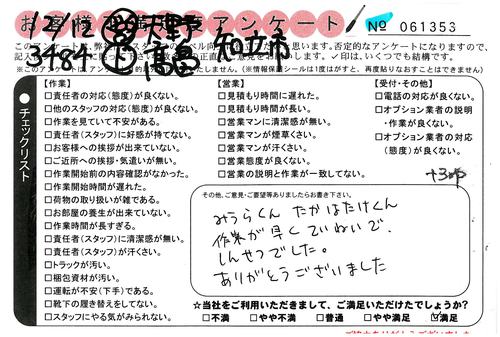 アンケート
No 061353
12/12 ㊒天野 知立市
3484 高畠
※このアンケートは、匿名で
(※情報保護シールは1度はがすと、再度貼りなおすことはできません)
●チェックリスト
【作業】
□責任者の対応(態度)が良くない。
□他のスタッフの対応(態度)が良くない。
□作業を見ていて不安がある。
□責任者(スタッフ)に好感が持てない。
□お客様への挨拶が出来ていない。
□ご近所への挨拶・気遣いが無い。
□作業開始前の内容確認がなかった。
□作業開始時間が遅れた。
□荷物の取り扱いが雑である。
□お部屋の養生が出来ていない。
□作業時間が長すぎる。
□責任者(スタッフ)に清潔感が無い。
□責任者(スタッフ)が汗くさい。
□トラックが汚い。
□梱包資材が汚い。
□運転が不安(下手)である。
□靴下の履き替えをしてない。
□スタッフにやる気がみられない。
【営業】
□見積もり時間に遅れた。
□見積もり時間が長い。
□営業マンに清潔感が無い。
□営業マンが煙草くさい。
□営業マンが汗くさい。
□営業態度が良くない。
□営業の説明と作業が一致してない。
【受付・その他】
□電話の対応が良くない。
□オプション業者の説明
・作業が良くない。
□オプション業者の対応
(態度)が良くない。
その他、ご意見・ご要望等ありましたらお書き下さい。
みうらくん たかはたけくん
作業が早くていねいで、
しんせつでした。
ありがとうございました
☆当社をご利用いただきまして、ご満足いただけたでしょうか?
□不満 □やや不満 □普通 □やや満足 ☑満足